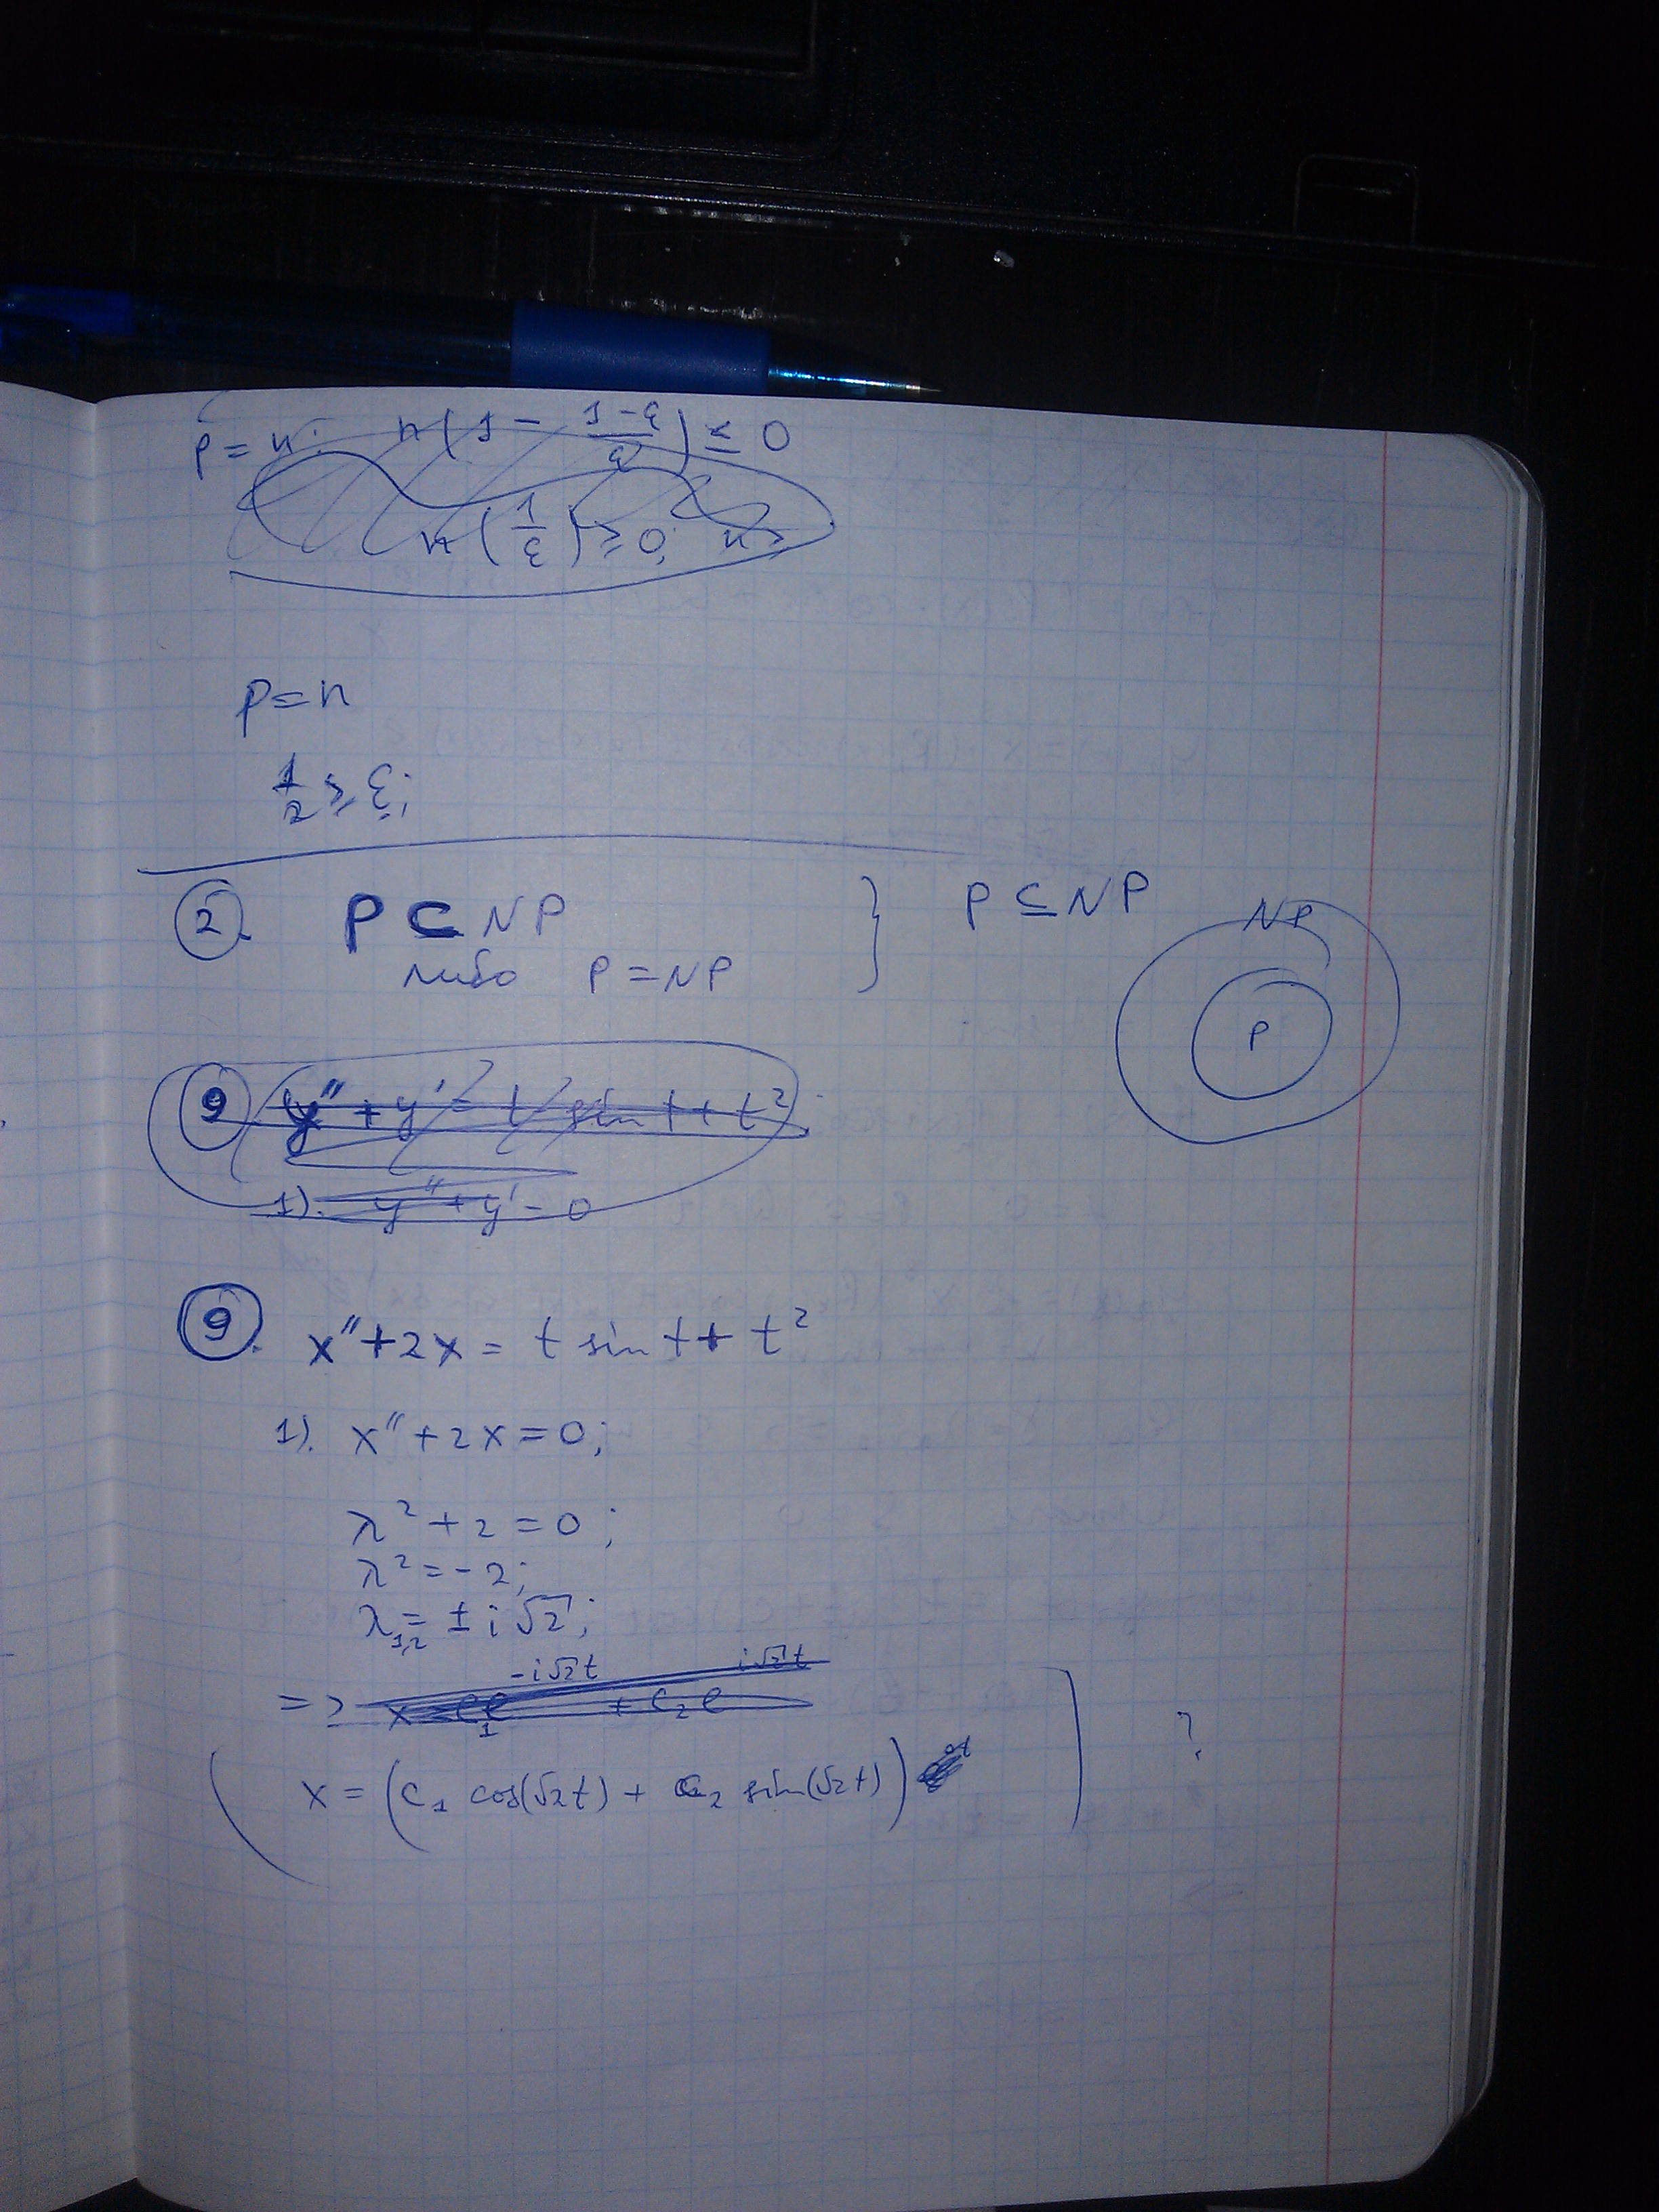 p = n: n(1 - (1-ε)/ε) ≤ 0
n(1/ε) ≥ 0; n ≥
p = n
1/2 ≥ ε;
2. P ⊂ NP } P ⊆ NP
либо P = NP
NP
P
9 y'' + y' = t sin t + t²
1). y'' + y' = 0
9. x'' + 2x = t sin t + t²
1). x'' + 2x = 0;
λ² + 2 = 0;
λ² = -2;
λ₁,₂ = ± i√2;
=> x = C₁e^(-i√2t) + C₂e^(i√2t)
x = (C₁ cos(√2t) + C₂ sin(√2t)) ?